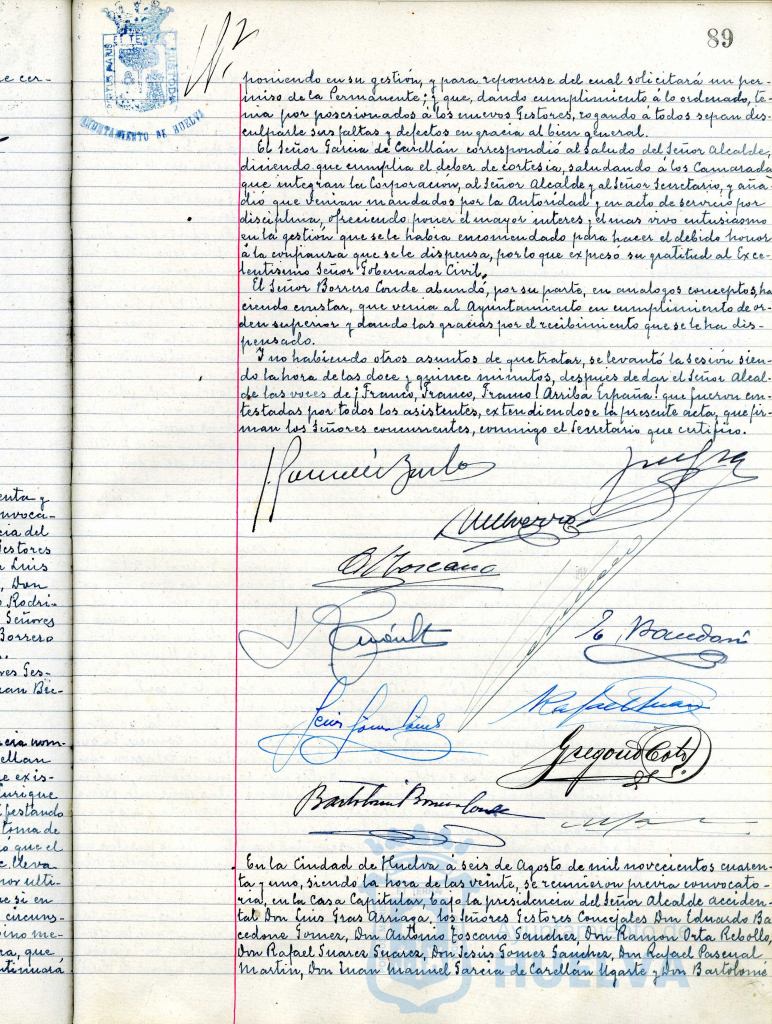 89
AYUNTAMIENTO DE HUELVA
poniendo en su gestión, y para reponerse del cual solicitará un per-
miso de la Permanente; y que, dando cumplimiento á lo ordenado, te-
nia por posesionados á los nuevos Gestores, rogando á todos sepan dis-
culparle sus faltas y defectos en gracia al bien general.
El Señor Garcia de Carellán correspondió al saludo del Señor Alcalde,
diciendo que cumplia el deber de cortesia, saludando á los Camaradas
que integran la Corporación, al Señor Alcalde y al Señor Secretario, y aña-
dió que venian mandados por la Autoridad y en acto de servicio por
disciplina, ofreciendo poner el mayor interes, el mas vivo entusiasmo
en la gestión que se le habia encomendado para hacer el debido honor
á la confianza que se le dispensa, por lo que expresó su gratitud al Exce-
lentisimo Señor Gobernador Civil.
El Señor Borrero Conde abundó, por su parte, en analogos conceptos, ha-
ciendo constar, que venia al Ayuntamiento en cumplimiento de or-
den superior y dando las gracias por el recibimiento que se le ha dis-
pensado.
Y no habiendo otros asuntos de que tratar, se levantó la sesión sien-
do la hora de las doce y quince minutos, despues de dar el Señor Alcal-
de las voces de ¡Franco, Franco, Franco! ¡Arriba España! que fueron con-
testadas por todos los asistentes, extendiendose la presente acta, que fir-
man los Señores concurrentes, conmigo el Secretario que certifico.
A Toscano
E. Bacedoni
Rafael Suarez
Jesús Gómez Sánchez
Gregorio
Bartolomé Borrero Conde
En la Ciudad de Huelva á seis de Agosto de mil novecientos cuaren-
ta y uno, siendo la hora de las veinte, se reunieron previa convocato-
ria, en la Casa Capitular, bajo la presidencia del Señor Alcalde acciden-
tal Don Luis Gras Arriaga, los Señores Gestores Concejales Don Eduardo Ba-
cedone Gomez, Don Antonio Toscano Sanchez, Don Ramon Orta Rebollo,
Don Rafael Suarez Suarez, Don Jesús Gomez Sanchez, Don Rafael Pascual
Martin, Don Juan Manuel Garcia de Carellán Ugarte y Don Bartolomé
Ayuntamiento de
HUELVA